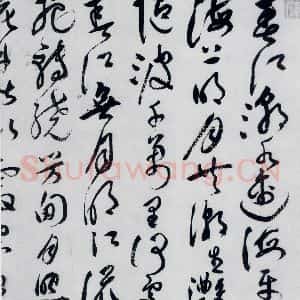 春江潮水連海平
海上明月共潮生灩
隨波千萬里何處
春江無月明江流
宛轉繞芳甸月照
Shufawang.CN